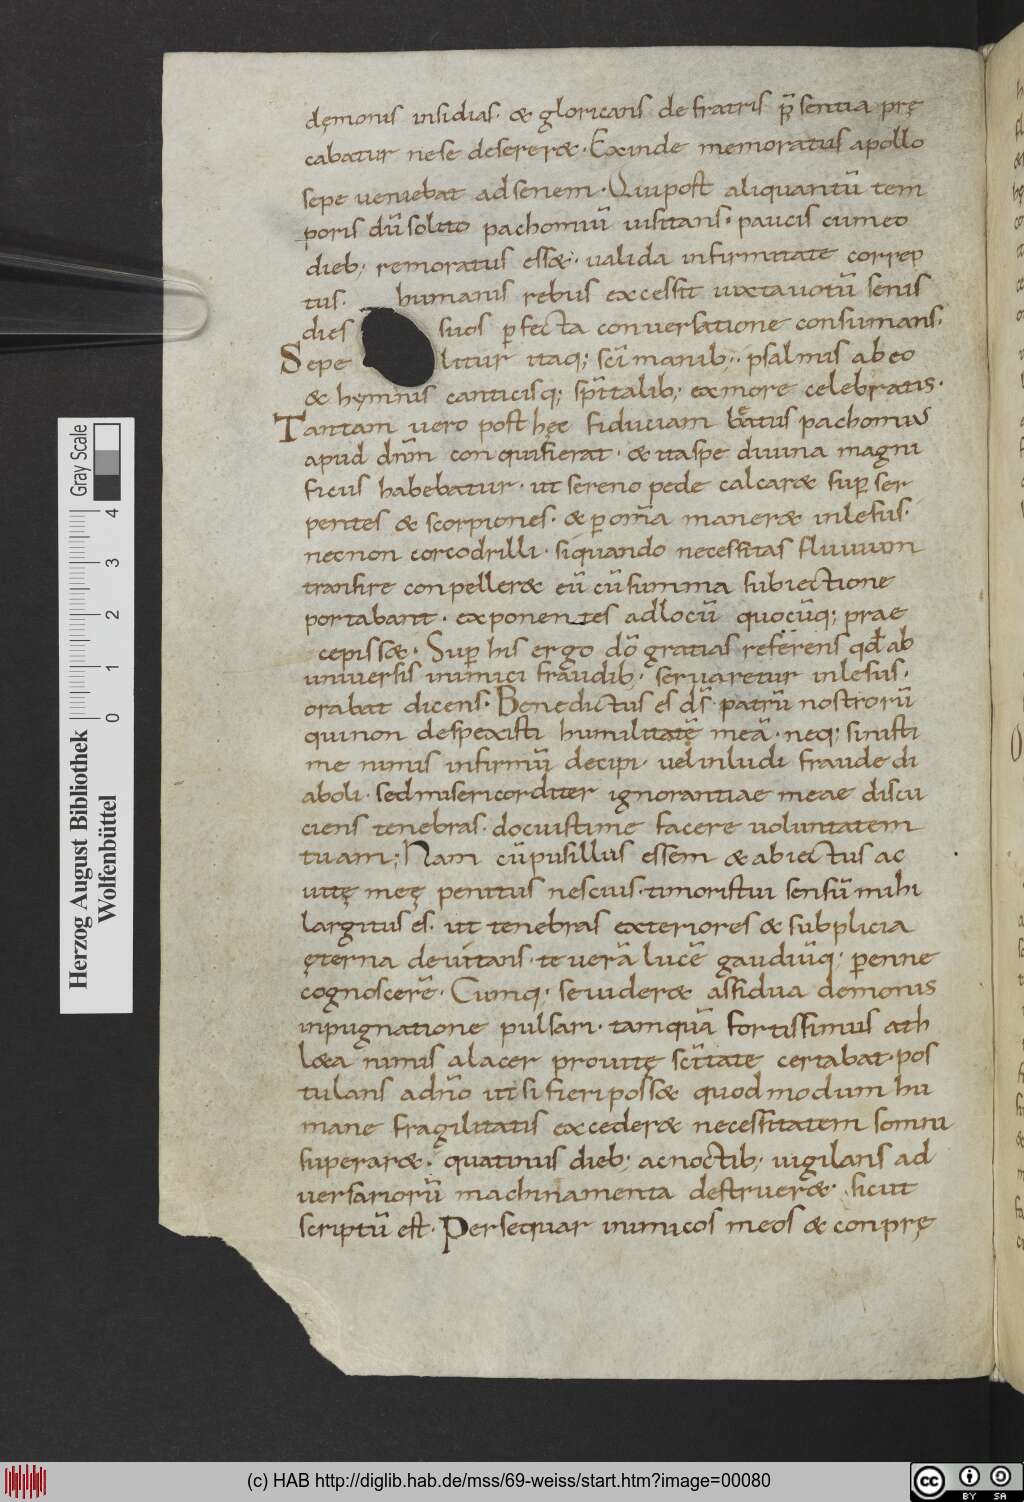 dęmonis insidias· & gloricans de fratris p̄sentia prę
cabatur ne se deserer&· Exinde memoratus apollo
sepe ueniebat ad senem· Qui post aliquantū tem
poris dū solito pachomiū uisitans· paucis cum eo
dieb; remoratus ess&· ualida infirmitate correp
tus· humanis rebus excessit iuxta uotū senis
dies suos p̱fecta conuersatione consumans·
Sepe litur itaq; sc̄i manib;· psalmis ab eo
& hęmnis canticisq; sp̄italib; ex more celebratis·
Tantam uero post hęc fiduciam beatus pachomius
apud dn̄m conquisierat· & ita spe diuina magni
ficus habebatur· ut sereno pede calcar& sup̱ ser
pentes & scorpiones· & p̱ om̄a maner& inlesus·
necnon corcodrilli· siquando necessitas fluuium
transire conpeller& eū cū summa subiectione
portabant· exponentes ad locū quocūq; prae
cepiss&· Sup̱ his ergo dō gratias referens qđ ab
uniuersis inimici fraudib; seruaretur inlesus·
orabat dicens· Benedictus es ds̄ patrū nostrorū
qui non despexisti humilitatē meā· neq; sinisti
me nimis infirmū decipi· uel inludi fraude di
aboli· sed misericorditer ignorantiae meae discu
ciens tenebras· docuisti me facere uoluntatem
tuam; Nam cū pusillus essem & abiectus ac
uitę meę penitus nescius· timoris tui sensū mihi
largitus es· ut tenebras exteriores & subplicia
ęterna deuitans· te uerā lucē gaudiūq· p̱enne
cognoscerē· Cumq· se uider& assidua demonis
inpugnatione pulsari· tamquā fortissimus ath
l&a nimis alacer pro uitę sc̄itate certabat· pos
tulans a dn̄o ut si fieri poss& quod modum hu
mane fragilitatis exceder& necessitatem somni
superar&· quatinus dieb; ac noctib; uigilans ad
uersariorū machinamenta destruer&· sicut
scriptū est· Persequar inimicos meos & conprę
Gray Scale
0 1 2 3 4
Herzog August Bibliothek
Wolfenbüttel
(c) HAB http://diglib.hab.de/mss/69-weiss/start.htm?image=00080
cc BY SA